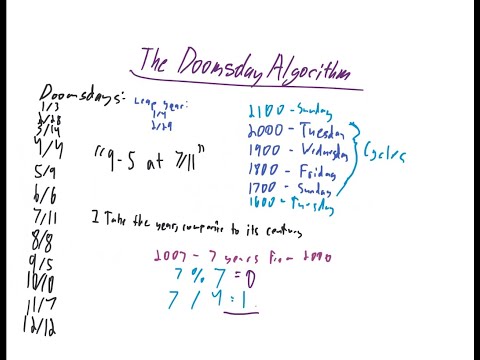 The Doomsday Algorithm
Dooomsdays:
1/3
2/28
3/14
4/4
5/9
6/6
7/11
8/8
9/5
10/10
11/7
12/12
Leap year:
1/4
2/29
"9-5 at 7/11"
2100 - Sunday
2000 - Tuesday
1900 - Wednesday
1800 - Friday
1700 - Sunday
1600 - Tuesday
Cycles
I Take the year, compare to its century
2007 - 7 years from 2000
7 % 7 = 0
7 / 4 = 1